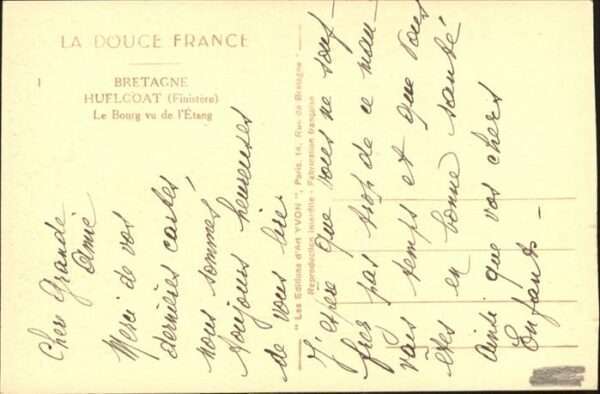 LA DOUCE FRANCE
1
BRETAGNE
HUELGOAT (Finistère)
Le Bourg vu de l'Étang
"Les Editions d'Art YVON", Paris, 14, Rue de Bretagne -
Reproduction Interdite - Fabrication française
Chère grande
Amie
Merci de vos
dernières cartes,
nous sommes
toujours heureuses
de vous lire
J'espère que vous ne souf-
frez pas trop de ce mau-
vais temps et que vous
êtes en bonne santé
ainsi que vos chers
Enfants -